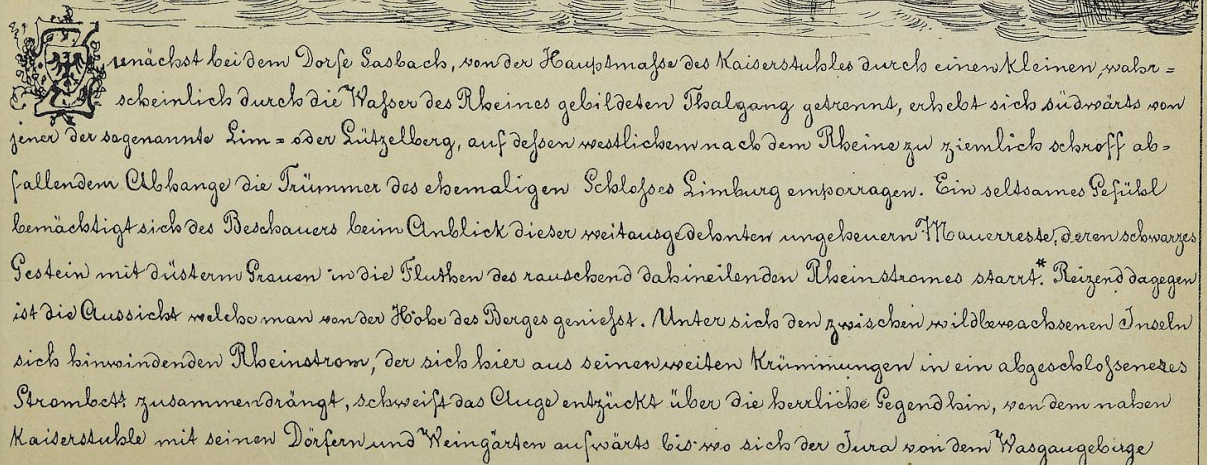 unächst bei dem Dorfe Sasbach, von der Hauptmaſse des Kaiserstuhles durch einen kleinen, wahr=
scheinlich durch die Waſser des Rheines gebildeten Thalgang getrennt, erhebt sich südwärts von
jener der sogenannte Lim= oder Lützelberg, auf deſsen westlichem nach dem Rheine zu ziemlich schroff ab=
fallendem Abhange die Trümmer des ehemaligen Schloſses Limburg emporragen. Ein seltsames Gefühl
bemächtigt sich des Beschauers beim Anblick dieser weitausgedehnten ungeheuern Mauerreste, deren schwarzes
Gestein mit düsterm Grauen in die Fluthen des rauschend dahineilenden Rheinstromes starrt.* Reizend dagegen
ist die Aussicht welche man von der Höhe des Berges genieſst. Unter sich den zwischen wildbewachsenen Inseln
sich hinwindenden Rheinstrom, der sich hier aus seinen weiten Krümmungen in ein abgeschloſsenes
Strombett zusammendrängt, schweift das Auge entzückt über die herrliche Gegend hin, von dem nahen
Kaiserstuhle mit seinen Dörfern und Weingärten aufwärts bis wo sich der Jura von dem Wasgaugebirge